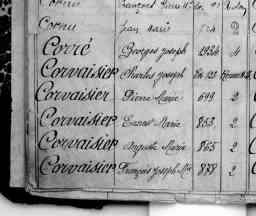 Cornu Jean Marie 2
Corré Georges Joseph 1924 4
Corvaisier Charles Joseph
Corvaisier Pierre Marie 699 2
Corvaisier Marie 853 2
Corvaisier Auguste Marie 865 2
Corvaisier François Joseph Mie 878 2